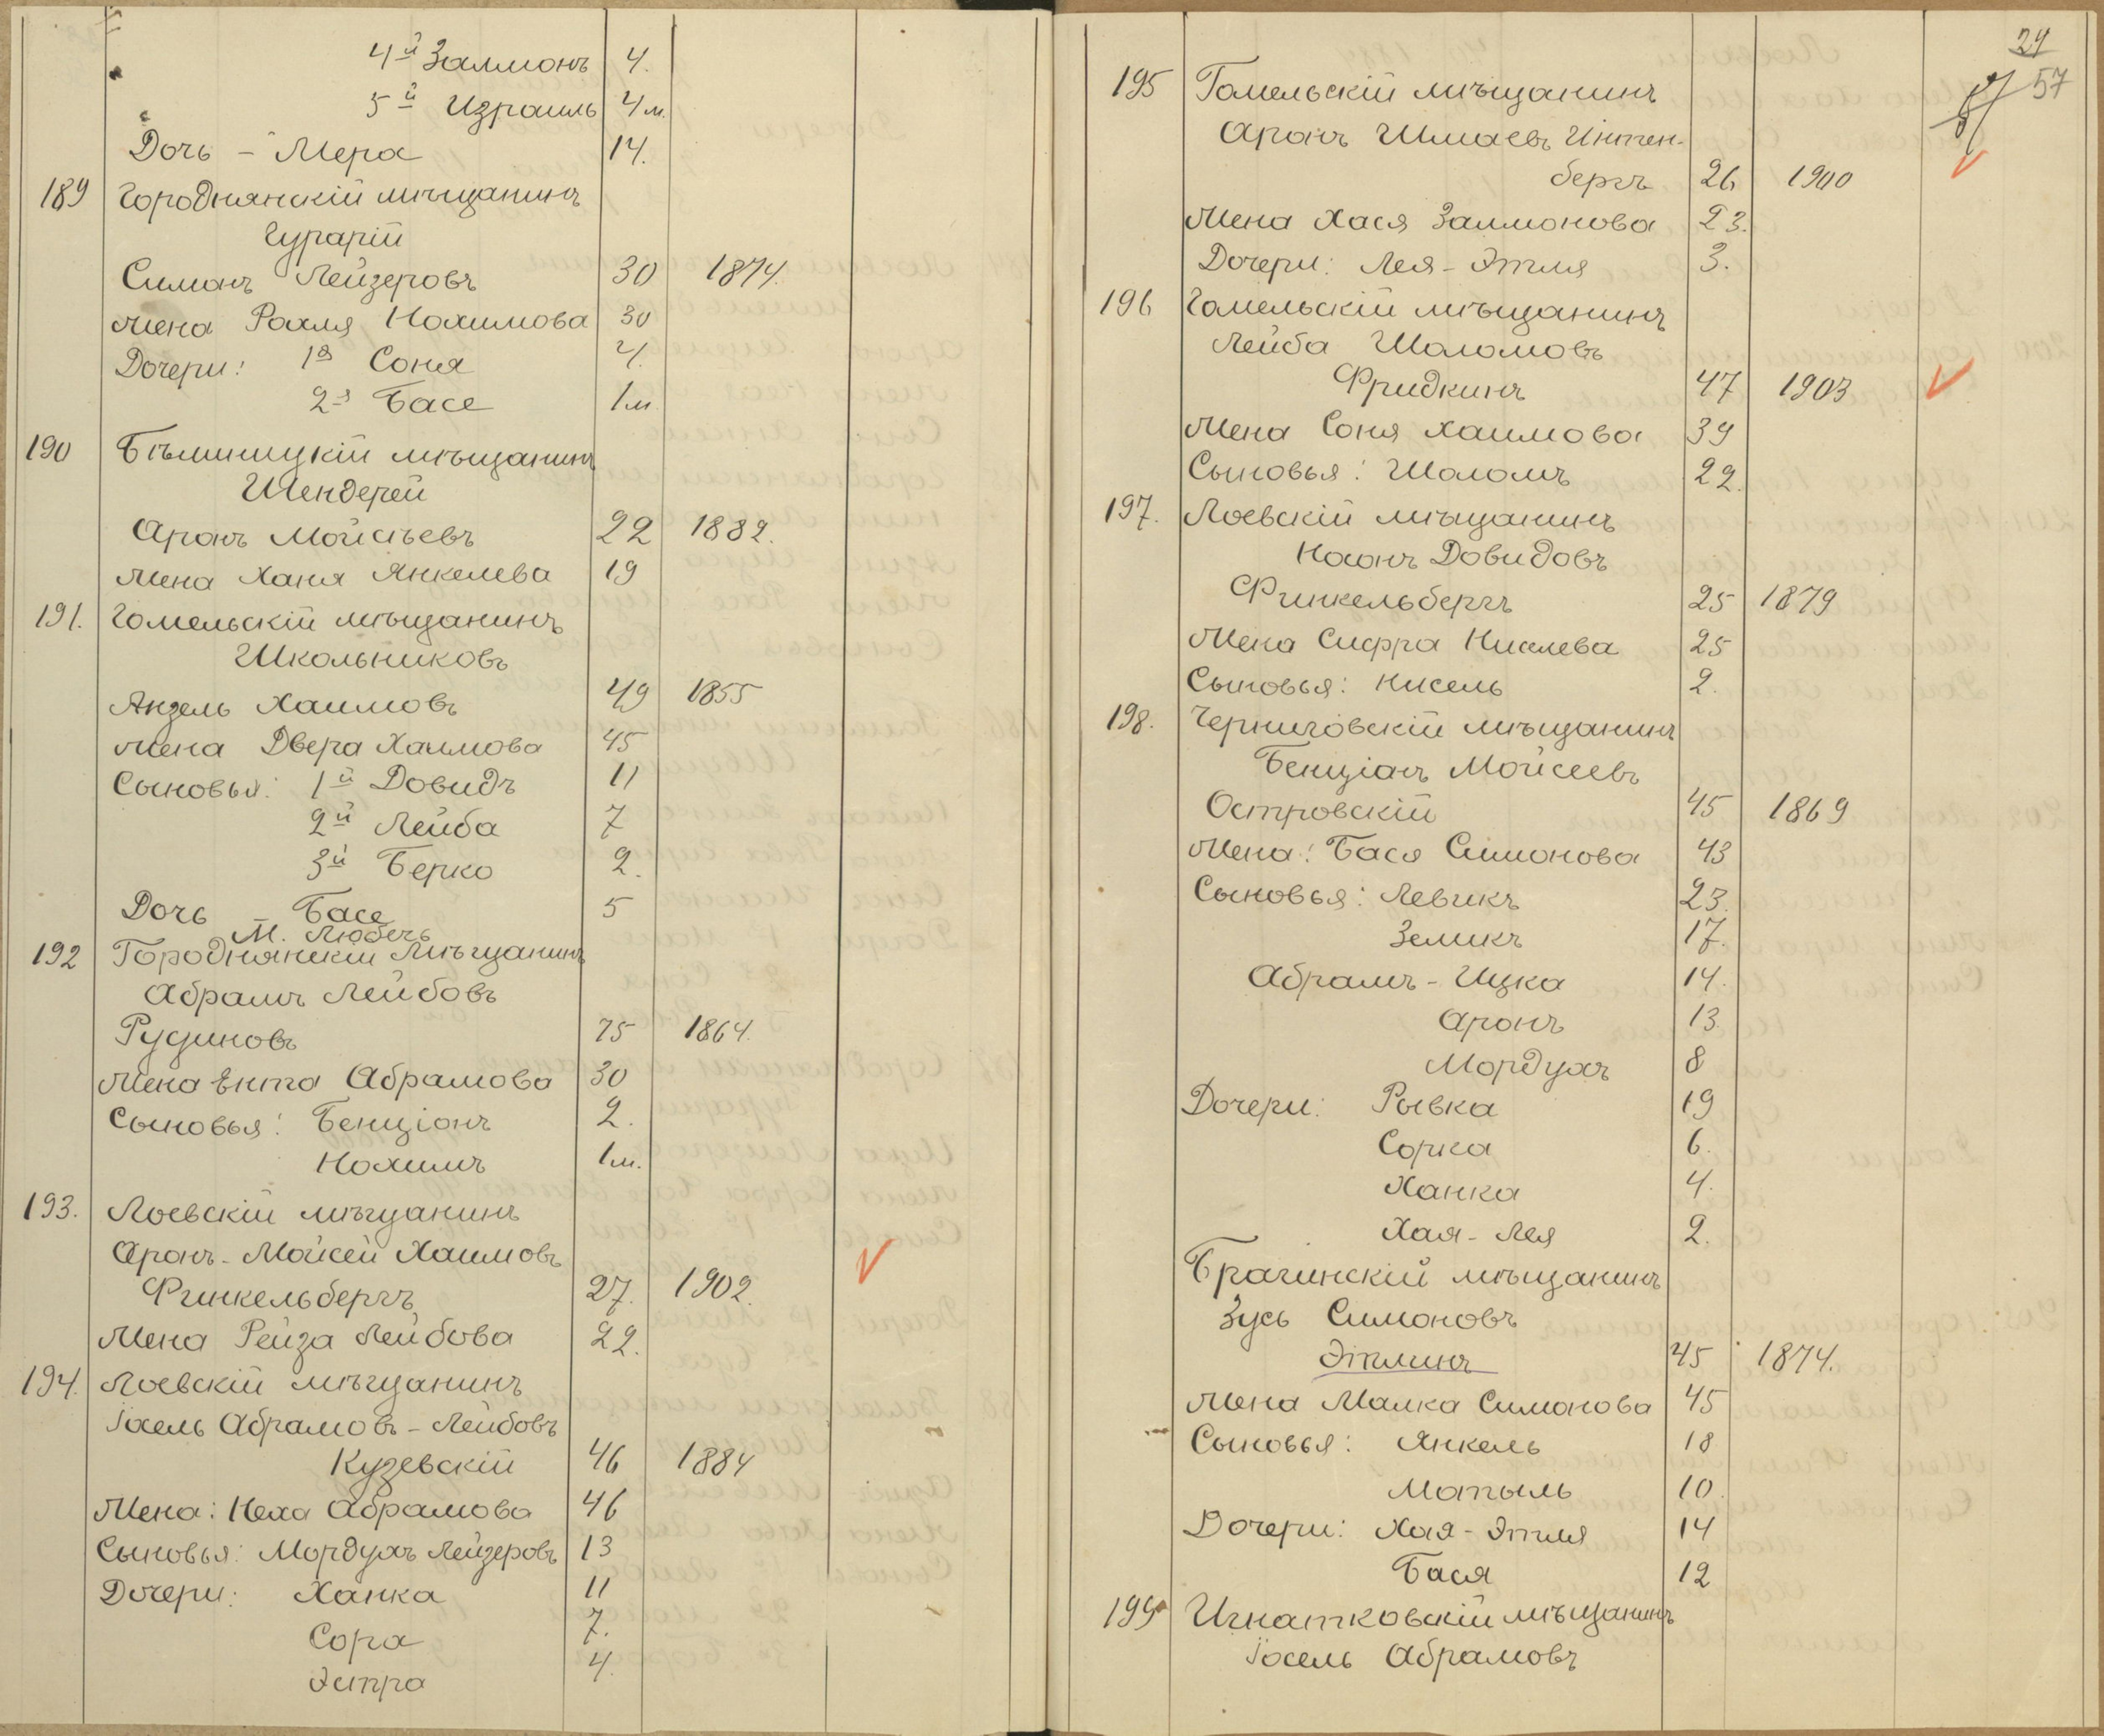 4й Залмонъ 4.
5й Израиль 4 м.
Дочь – Мера 14.
189 Городнянскій мѣщанинъ
Гурарій
Симонъ Лейзеровъ 30 1874.
Жена Рохля Нохимова 30
Дочери: 1я Соня 4.
2я Басе 1 м.
190 Бѣлыницкій мѣщанинъ
Шендерей
Аронъ Мойсѣевъ 22 1882.
Жена Ханя Янкелева 19
191. Гомельскій мѣщанинъ
Школьниковъ
Анзель Хаимовъ 49 1855
Жена Двера Хаимова 45
Сыновья: 1й Довидъ 11
2й Лейба 7
3й Берко 2.
Дочь – Басе 5
М. Любечь
192 Городнянскій Мѣщанинъ
Абрамъ Лейбовъ
Рудиновъ 75 1864.
Жена Ента Абрамова 30
Сыновья: Бенціонъ 2.
Нохимъ 1 м.
193. Лоевскій мѣщанинъ
Аронъ-Мойсей Хаимовъ
Финкельбергъ 27. 1902.
Жена Рейза Лейбова 22.
194. Лоевскій мѣщанинъ
Іосель Абрамовъ-Лейбовъ
Кузевскій 46 1884
Жена: Неха Абрамова 46
Сыновья: Мордухъ Лейзеровъ 13
Дочери: Ханка 11
Сора 7.
Эстра 4.
29
57
195 Гомельскій мѣщанинъ
Аронъ Шмаевъ Интен-
бергъ 26 1900
Жена Хася Залмонова 23.
Дочери: Лея-Этля 3.
196 Гомельскій мѣщанинъ
Лейба Шоломовъ
Фридкинъ 47 1903
Жена Соня Хаимова 39
Сыновья: Шоломъ 22.
197. Лоевскій мѣщанинъ
Ноонъ Довидовъ
Финкельбергъ 25 1879
Жена Сифра Нисилева 25
Сыновья: Нисель 2.
198. Черниговскій мѣщанинъ
Бенціанъ Мойсеевъ
Островскій 45 1869
Жена: Бася Симонова 43
Сыновья: Левикъ 23.
Земикъ 17.
Абрамъ-Ицка 14.
Аронъ 13.
Мордухъ 8
Дочери: Рывка 19
Сорка 6.
Ханка 4.
Хая-Лея 2.
Брагинскій мѣщанинъ
Зусь Симоновъ
Этлинъ 45 1874.
Жена Малка Симонова 45
Сыновья: Янкель 18
Мотыль 10.
Дочери: Хая-Этля 14
Бася 12
199 Игнатковскій мѣщанинъ
Іосель Абрамовъ